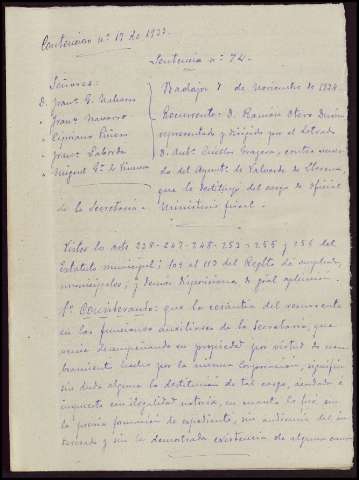 Contencioso nº 17 de 1927.
Sentencia nº 74.
Señores:
D. Franº G.
" Franº Navarro
" Cipriano
" Franº Laborda
" Miguel Gª de
Badajoz 7 de Noviembre de 1928
Recurrente: D. Ramón Otero Durán
representado y dirigido por el Letrado
D. Antº Cuellar Grajera, contra acuerdo
del Ayuntº de Valverde de Llerena,
que le destituyó del cargo de oficial
de la Secretaría. - Ministerio fiscal. -
Vistos los arts 228-247-248-253-255 y 256 del
Estatuto municipal; 104 al 113 del Reglto de empleados
municipales; y demás disposiciones de gral aplicación.
1º Considerando: que la cesantía del recurrente
en las funciones auxiliares de la Secretaría, que
venía desempeñando en propiedad por virtud de nom-
bramiento hecho por la misma corporación, significa
sin duda alguna la destitución de tal cargo, acordada e
impuesta con ilegalidad notoria, en cuanto lo fué sin
la previa formación de expediente, sin audiencia del in-
teresado y sin la demostrada existencia de alguna causa